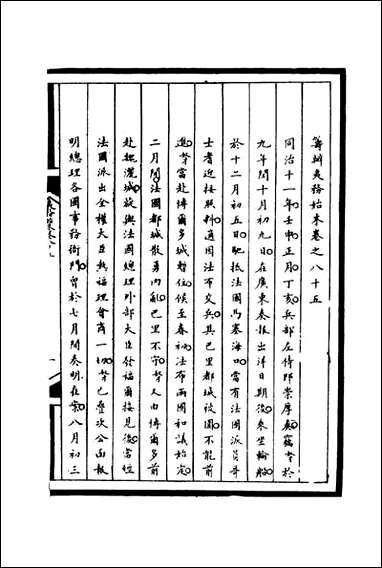 籌辦夷務始末卷之八十五
同治十一年壬申正月丁亥兵部左侍郎崇厚奏竊奴才於
九年間十月初九日在廣東奏報出洋日期後乘坐輪船
於十二月初五日馳抵法國馬塞海口當有法國派員哥
士耆迎接照料適因法布交兵其巴里都城被圍不能前
進奴才當赴博爾多城暫住候至春初法布兩國和議始定
二月間法國都城散勇內亂巴里不守奴才又由博爾多前
赴魏灑城旋與法國總理外部大臣發福爾接見後當經
法國派出全權大臣熱福理會商一切奴才已疊次公函報
明總理各國事務衙門曾於七月間奏明在案八月初三